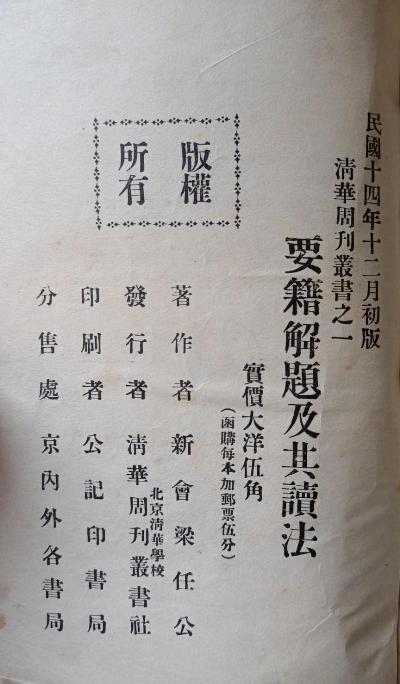 民國十四年十二月初版
清華周刊叢書之一
要籍解題及其讀法
實價大洋伍角
(函購每本加郵票伍分)
版權
所有
著作者 新會梁任公
北京清華學校
發行者 清華周刊叢書社
印刷者 公記印書局
分售處 京內外各書局